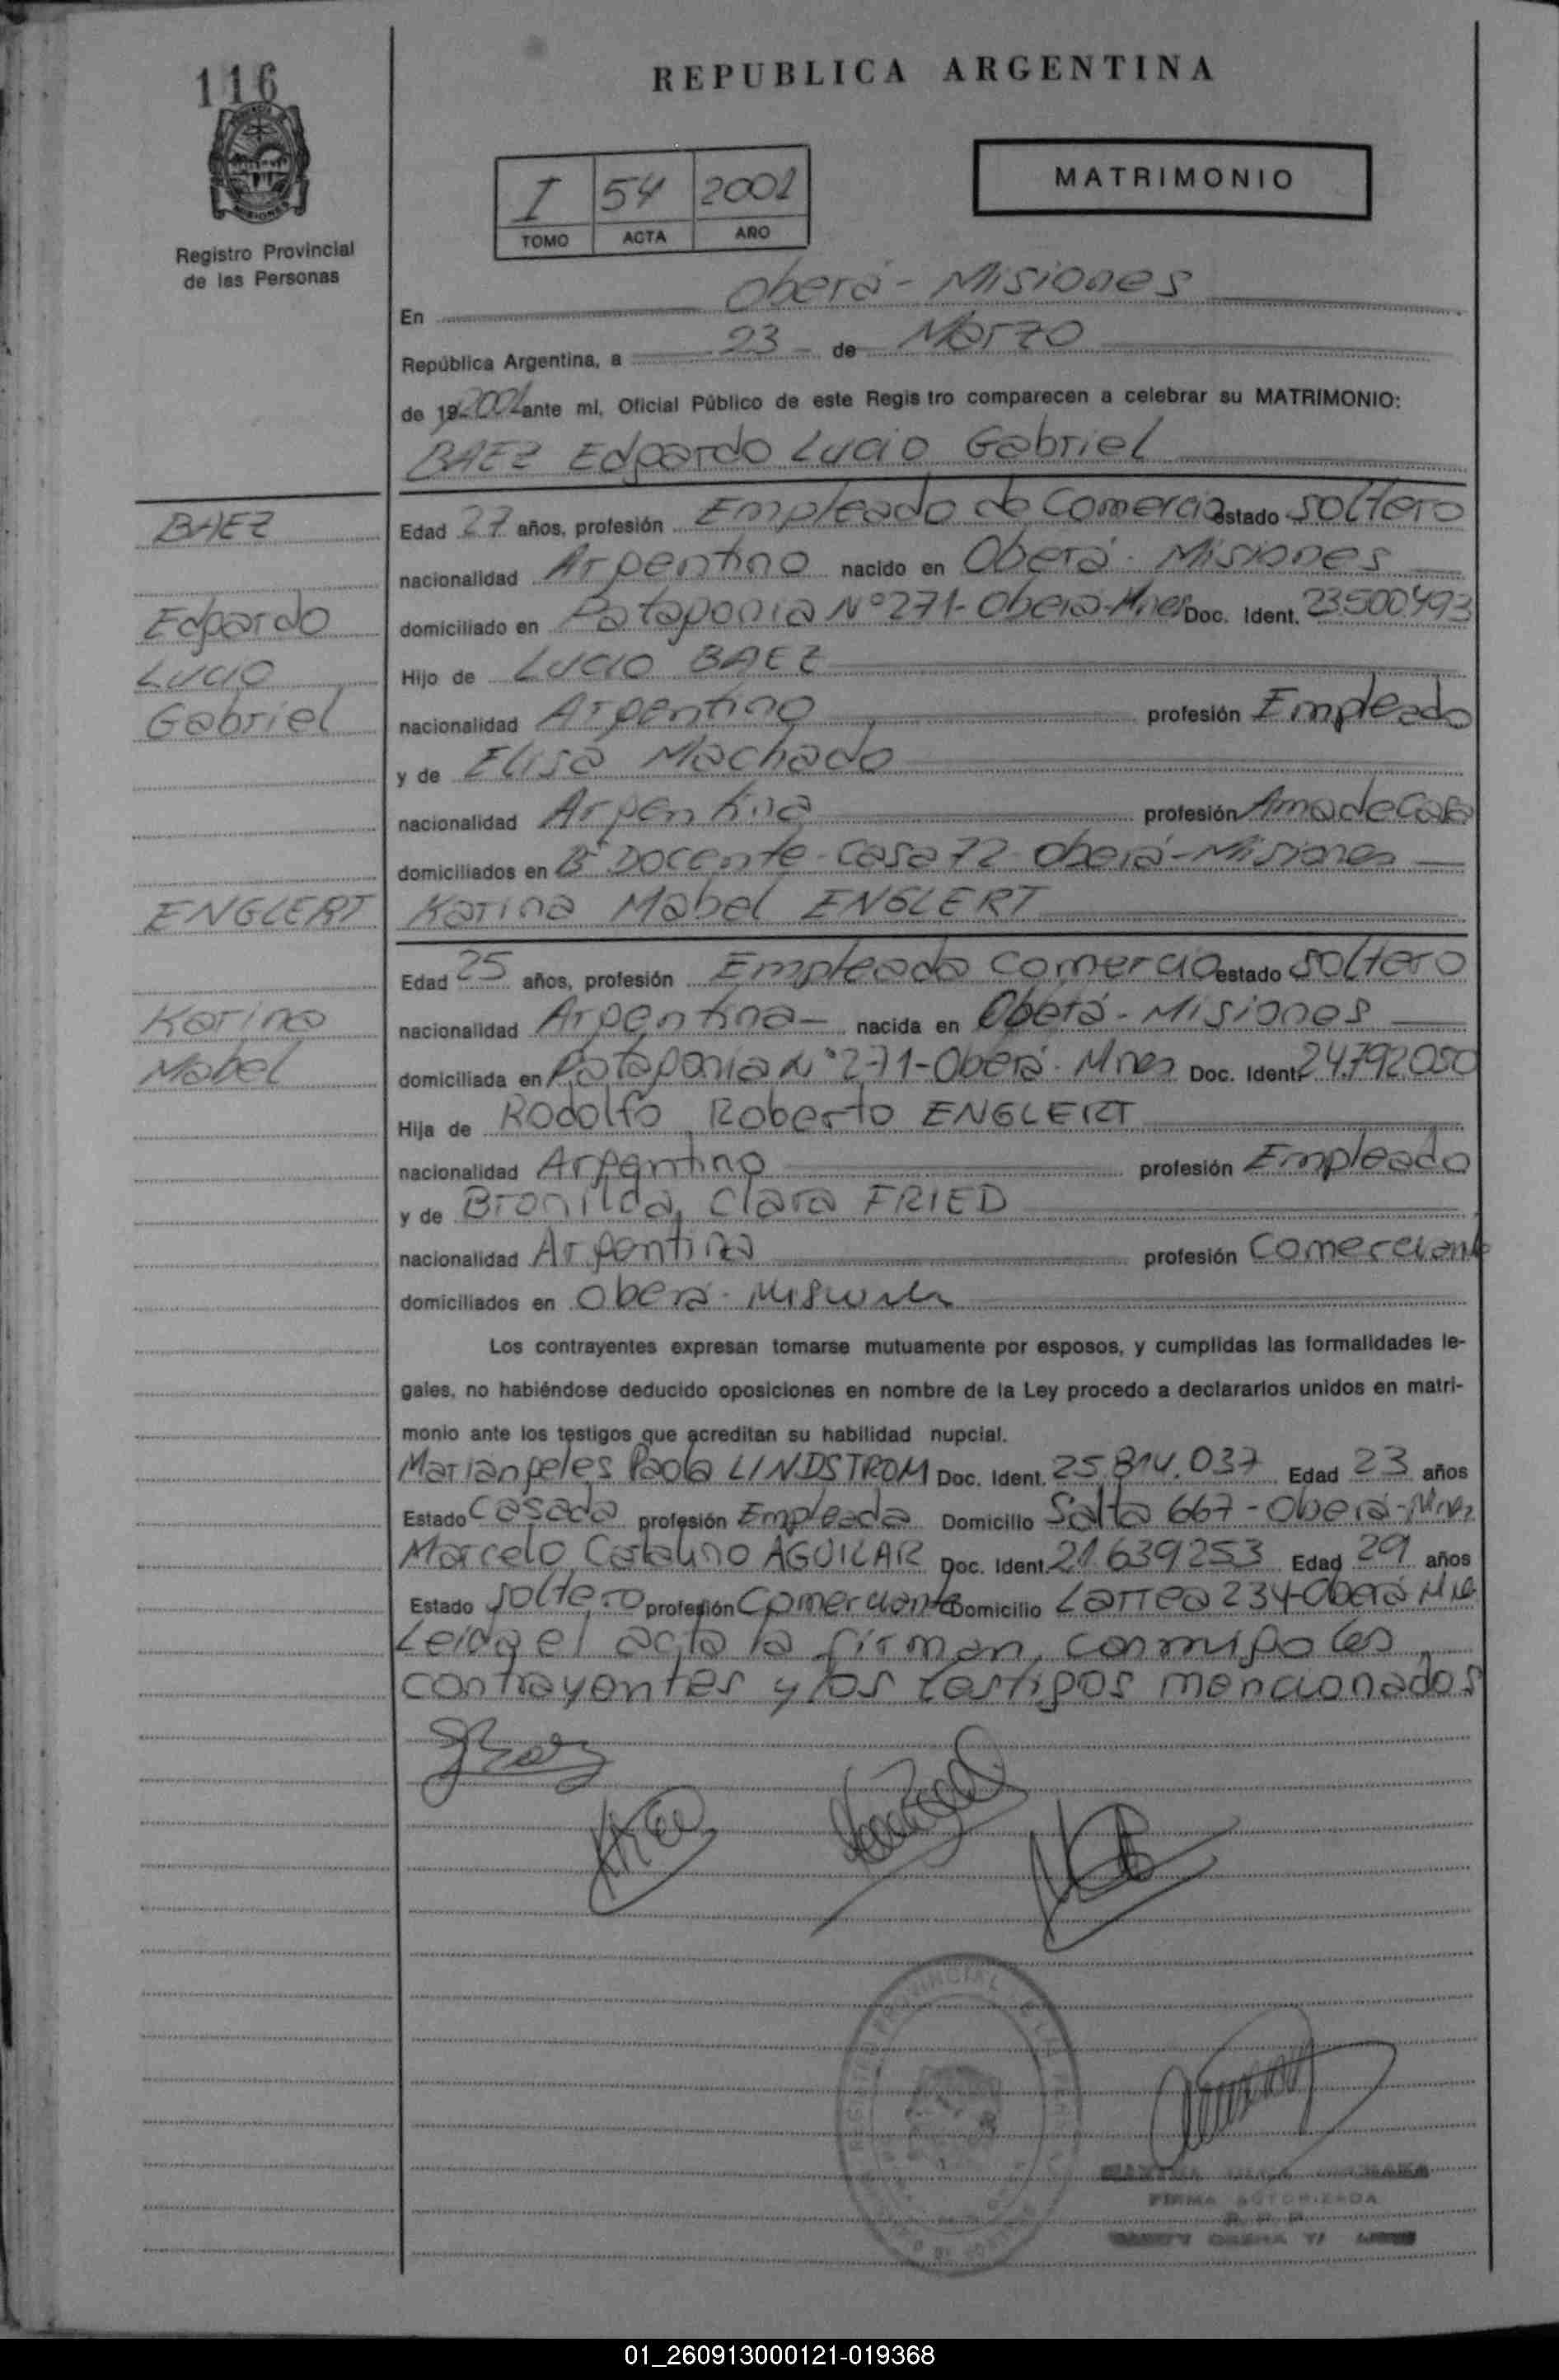 116
REPUBLICA ARGENTINA
MATRIMONIO
I 54 2001
TOMO ACTA AÑO
Registro Provincial
de las Personas
En Oberá - Misiones
República Argentina, a 23 de Marzo
de 19 2001 ante mí, Oficial Público de este Registro comparecen a celebrar su MATRIMONIO:
BAEZ Edgardo Lucio Gabriel
BAEZ
Edad 27 años, profesión Empleado de Comercio estado soltero
nacionalidad Argentino nacido en Oberá - Misiones
Edgardo
domiciliado en Patagonia Nº 271 - Oberá - Mnes Doc. Ident. 23500493
Lucio
Hijo de Lucio BAEZ
Gabriel
nacionalidad Argentino profesión Empleado
y de Elisa Machado
nacionalidad Argentina profesión Ama de Casa
domiciliados en Bº Docente - Casa 72 - Oberá - Misiones
ENGLERT
Karina Mabel ENGLERT
Edad 25 años, profesión Empleada Comercio estado soltero
Karina
nacionalidad Argentina - nacida en Oberá - Misiones
Mabel
domiciliada en Patagonia Nº 271 - Oberá - Mnes Doc. Ident. 24.792.050
Hija de Rodolfo Roberto ENGLERT
nacionalidad Argentino profesión Empleado
y de Bronilda Clara FRIED
nacionalidad Argentina profesión Comerciante
domiciliados en Oberá - Misiones
Los contrayentes expresan tomarse mutuamente por esposos, y cumplidas las formalidades le-
gales, no habiéndose deducido oposiciones en nombre de la Ley procedo a declararlos unidos en matri-
monio ante los testigos que acreditan su habilidad nupcial.
Mariangeles Paola LINDSTROM Doc. Ident. 25.814.037 Edad 23 años
Estado Casada profesión Empleada Domicilio Salta 667 - Oberá - Mnes
Marcelo Catalino AGUILAR Doc. Ident. 21639253 Edad 29 años
Estado soltero profesión Comerciante Domicilio Larrea 234 - Oberá
Leida el acta la firman, conmigo los
contrayentes y los testigos mencionados
FIRMA AUTORIZADA
01_260913000121-019368